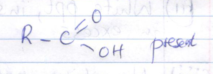 O
R - C
OH present